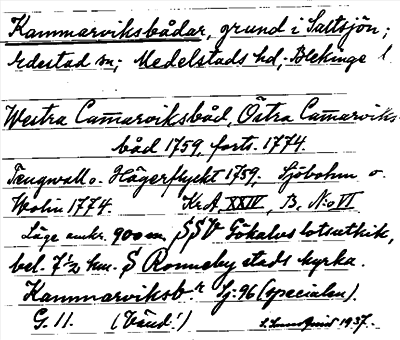 Kammarviksbådar, grund i Saltsjön;
rdestad sn; Medelstads hd; Blekinge l
Westra Cam̄arviksbåd, Östra Cam̄arviks-
båd 1759, forts. 1774.
Tengwall o. Hägerflycht 1759, Sjöbohm o.
Wolin 1774. Kr.A. XXIV, B, N:o VI
Läge omkr. 900 m. SSV Gökalvs lotsutkik,
bel. 7½ km. S Ronneby stads kyrka.
Kammarviksb.ʳ Sj:96 (specialen).
G. 11. (Vänd!) 1937.